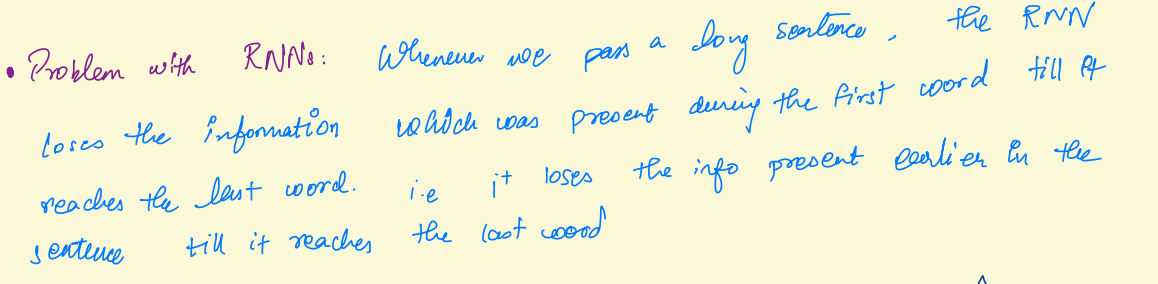 • Problem with RNNs: Whenever we pass a long sentence, the RNN
loses the information which was present during the first word till it
reaches the last word. i.e it loses the info present earlier in the
sentence till it reaches the last word